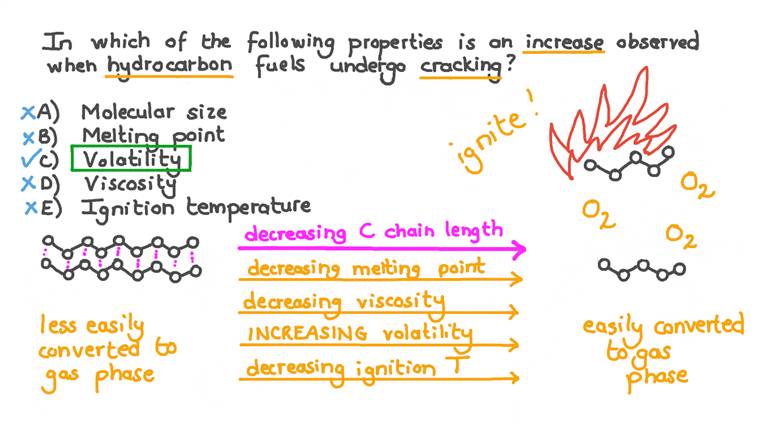 In which of the following properties is an increase observed
when hydrocarbon fuels undergo cracking?
A) Molecular size
B) Melting point
C) Volatility
D) Viscosity
E) Ignition temperature
ignite!
O₂
O₂
O₂
decreasing C chain length
decreasing melting point
decreasing viscosity
INCREASING volatility
decreasing ignition T
less easily
converted to
gas phase
easily converted
to gas
phase